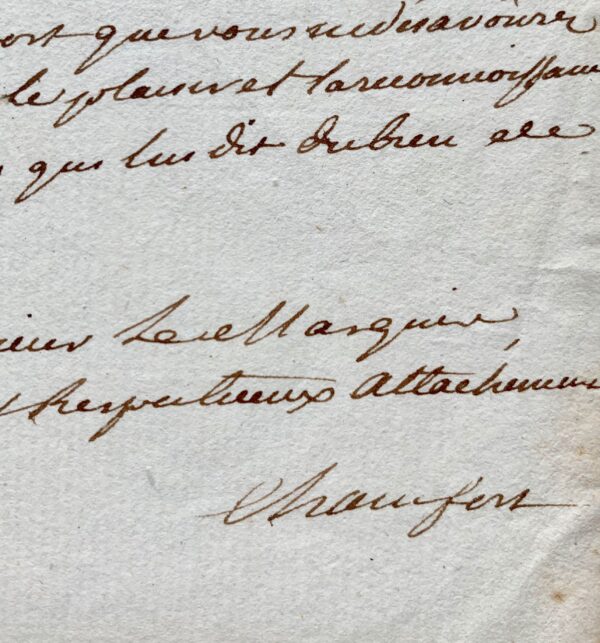 que vous me désavoürez
le plaisir et la reconnoissance
qui lui dit du bien de
Le Marquis,
Respectueux Attachement
Chamfort